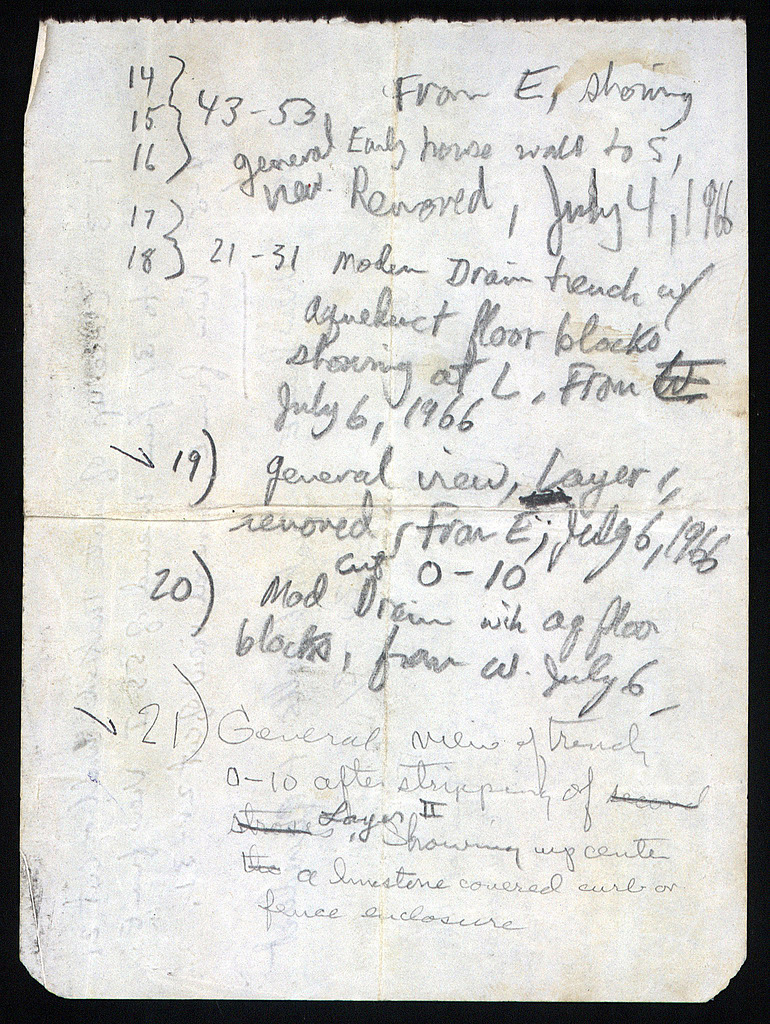 14 }
15 } 43-53, From E, showing
16 } general Early house wall to S,
view. Removed, July 4, 1966
17 }
18 } 21-31 Modern Drain trench w/
aqueduct floor blocks
showing at L. From W
July 6, 1966
✓ 19) general view, Layer 1,
removed, From E; July 6, 1966
cut 0-10
20) Mod Drain with aq floor
blocks, from W. July 6
✓ 21) General view of trench
0-10 after stripping of second
Layer II, Showing up center
the a limestone covered curb or
fence enclosure